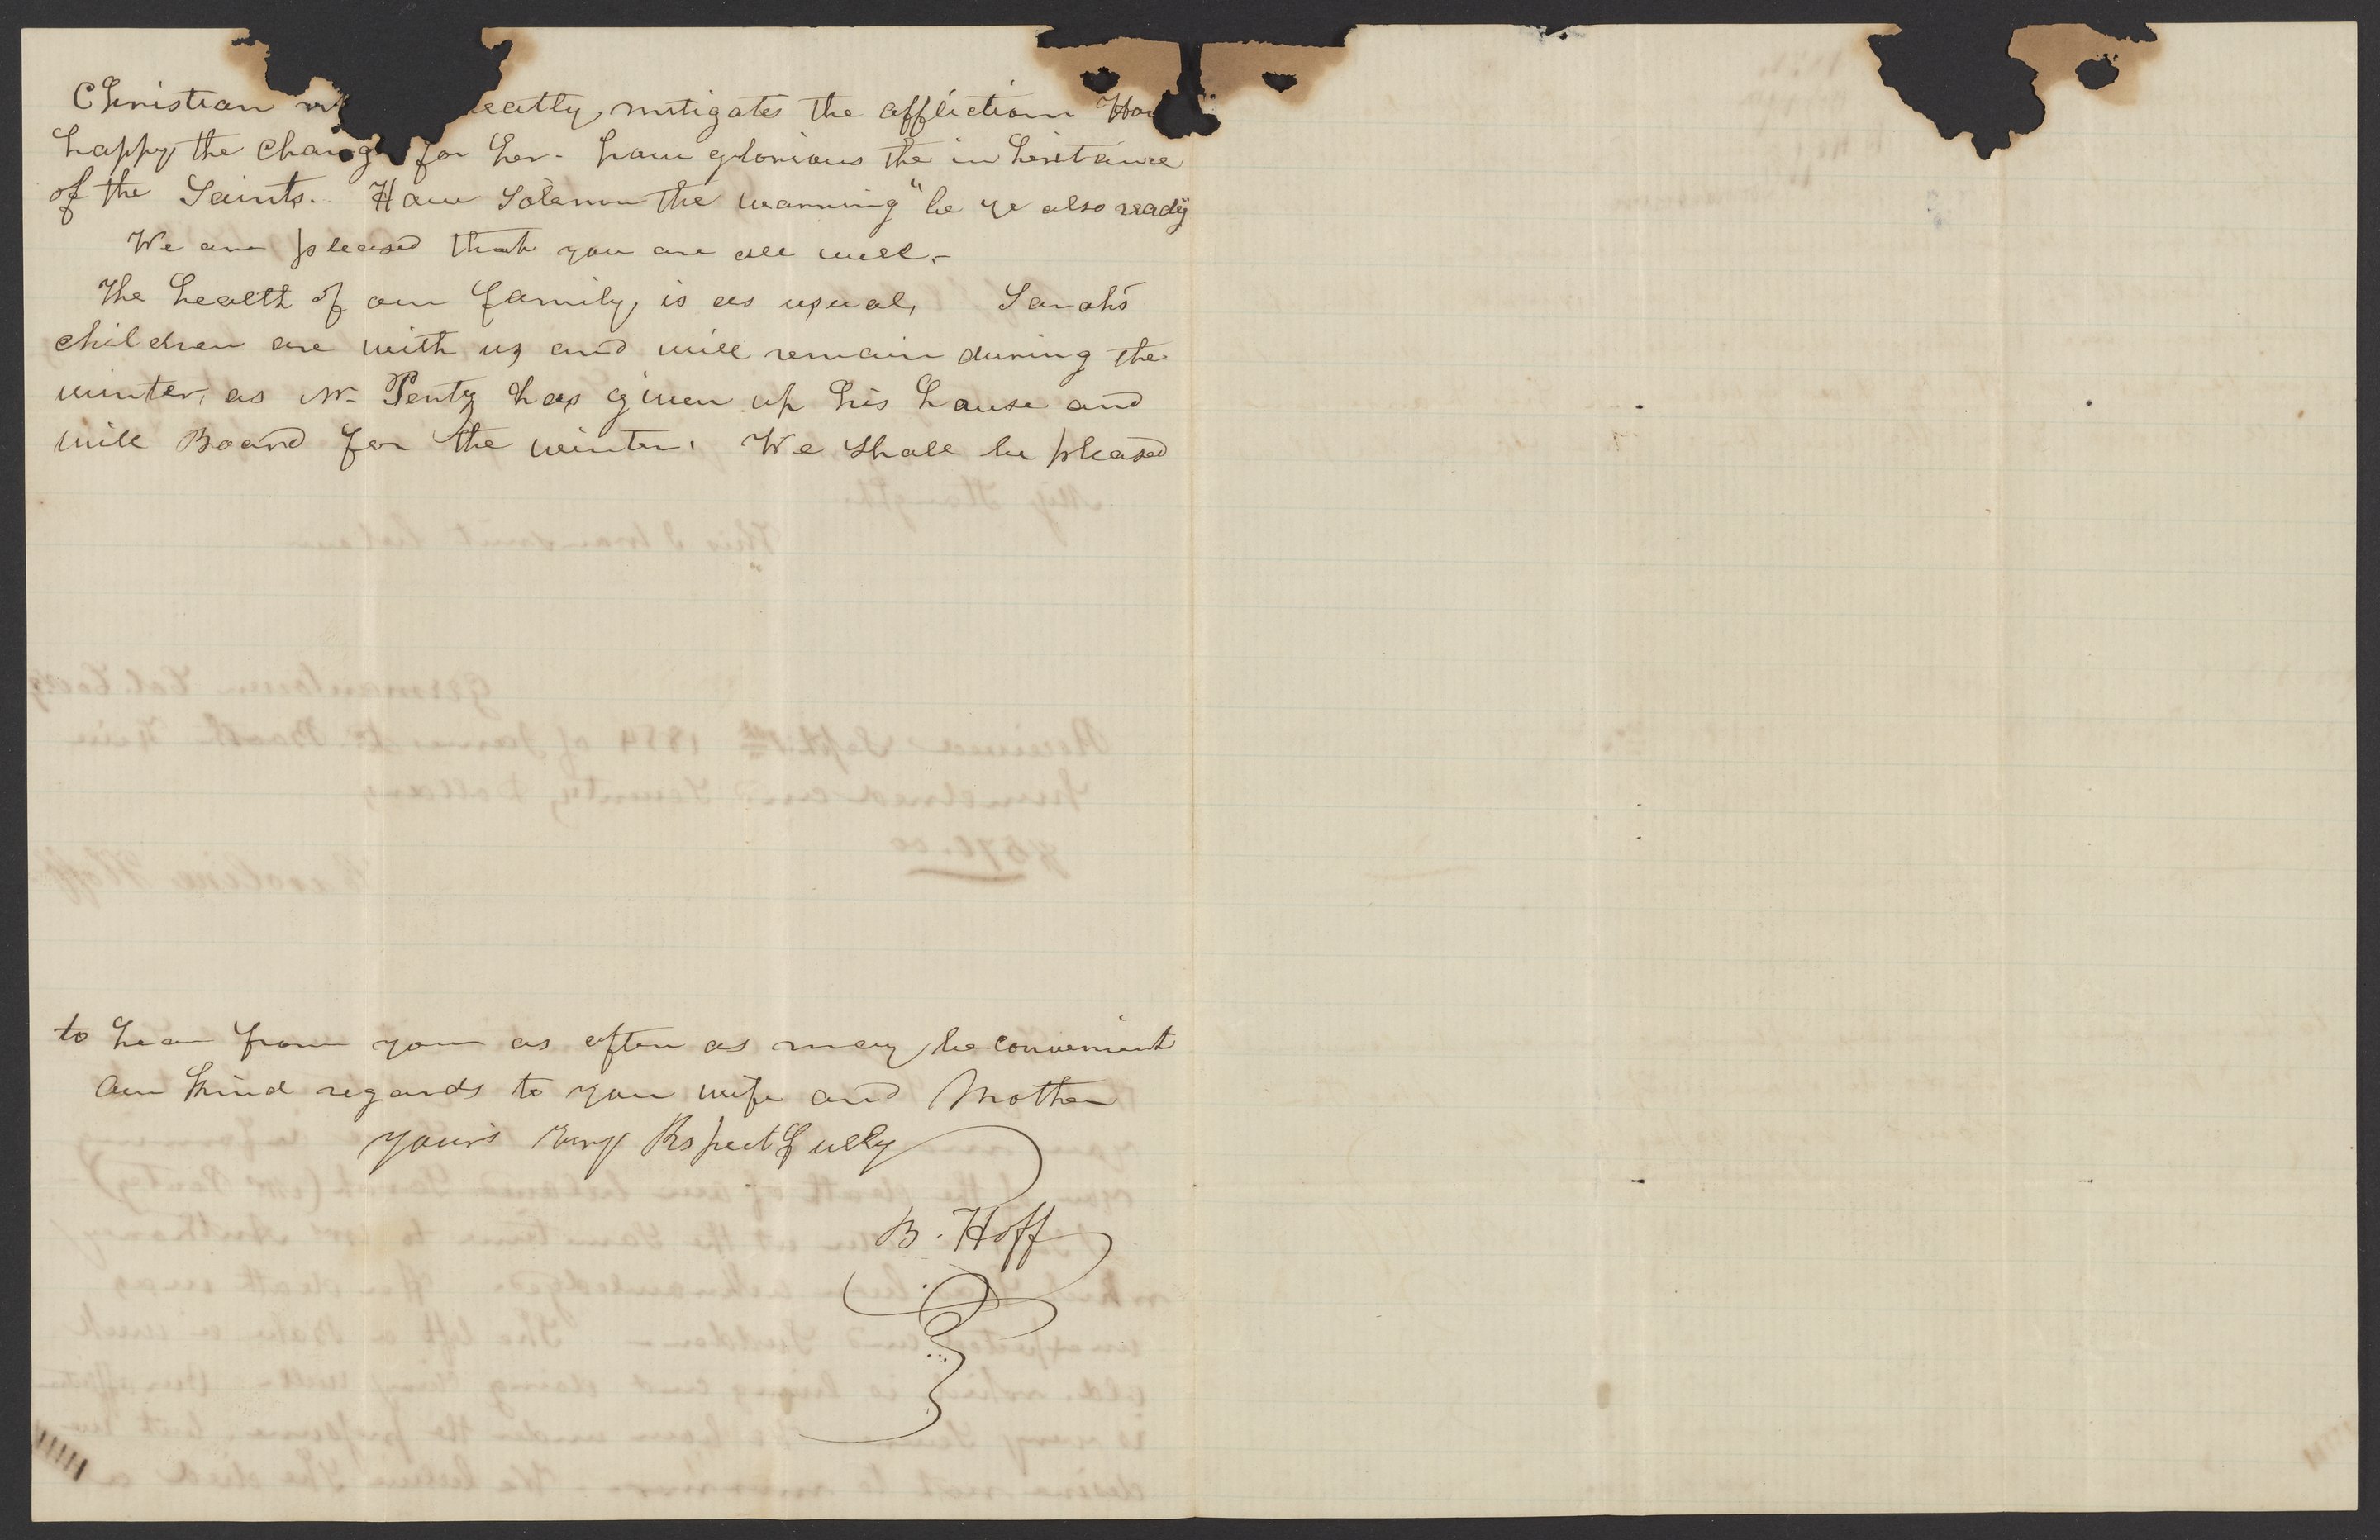 Christian eatly mitigates the affliction How
happy the change for her - how glorious the inheritance
of the Saints. How Solemn the warning "be ye also ready"
We are pleased that you are all well. -
The health of our family, is as usual, Sarah's
children are with us and will remain during the
winter, as Mr Penty has given up his house and
will Board for the winter. We shall be pleased
to hear from you as often as may be convenient
Our kind regards to your wife and Mother
yours very Respectfully
B. Hoff